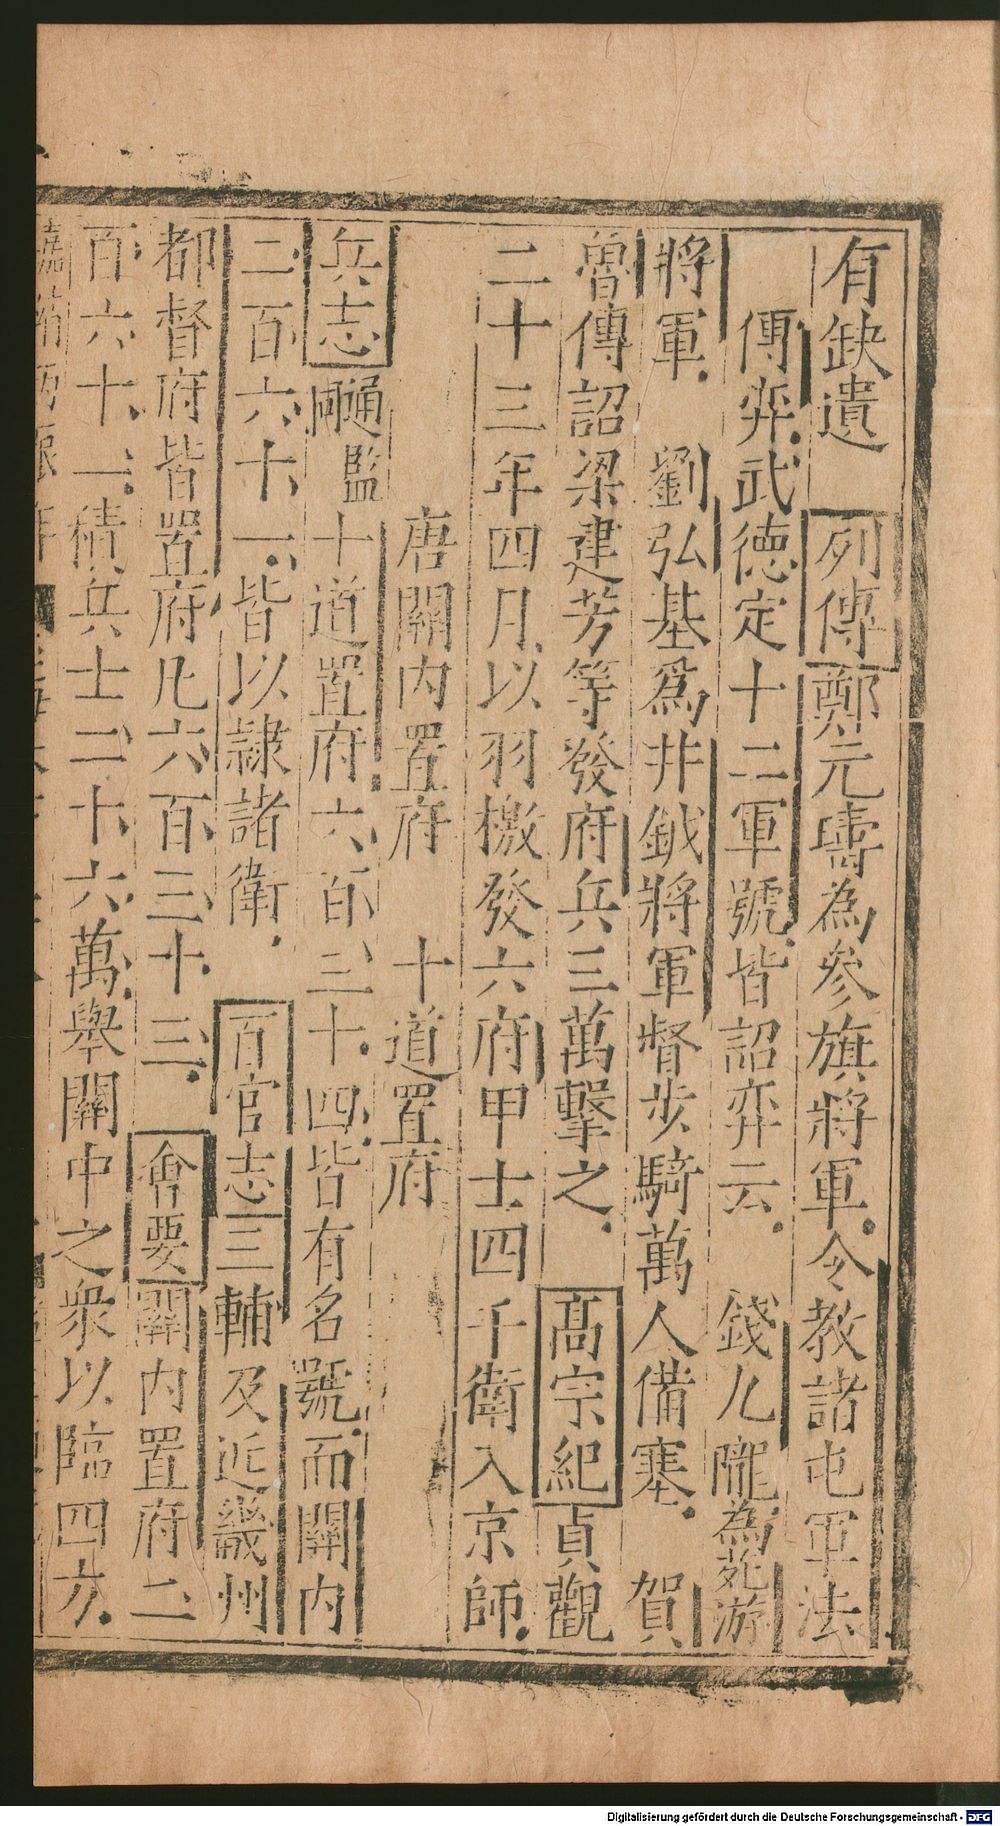 有缺遺　列傳鄭元璹為參旗將軍令教諸屯軍法
傅弈武德定十二軍號皆詔弈云　錢九隴為苑游
將軍　劉弘基爲井鉞將軍督步騎萬人備塞　賀
魯傳詔梁建芳等發府兵三萬擊之　高宗紀貞觀
二十三年四月以羽檄發六府甲士四千衛入京師
唐關内置府　十道置府
兵志　通監同　十道置府六百三十四皆有名號而關内
二百六十一皆以隷諸衛　百官志三輔及近畿州
都督府皆置府凡六百三十三　會要關内置府二
百六十一積兵士二十六萬舉關中之衆以臨四方
Digitalisierung gefördert durch die Deutsche Forschungsgemeinschaft - DFG